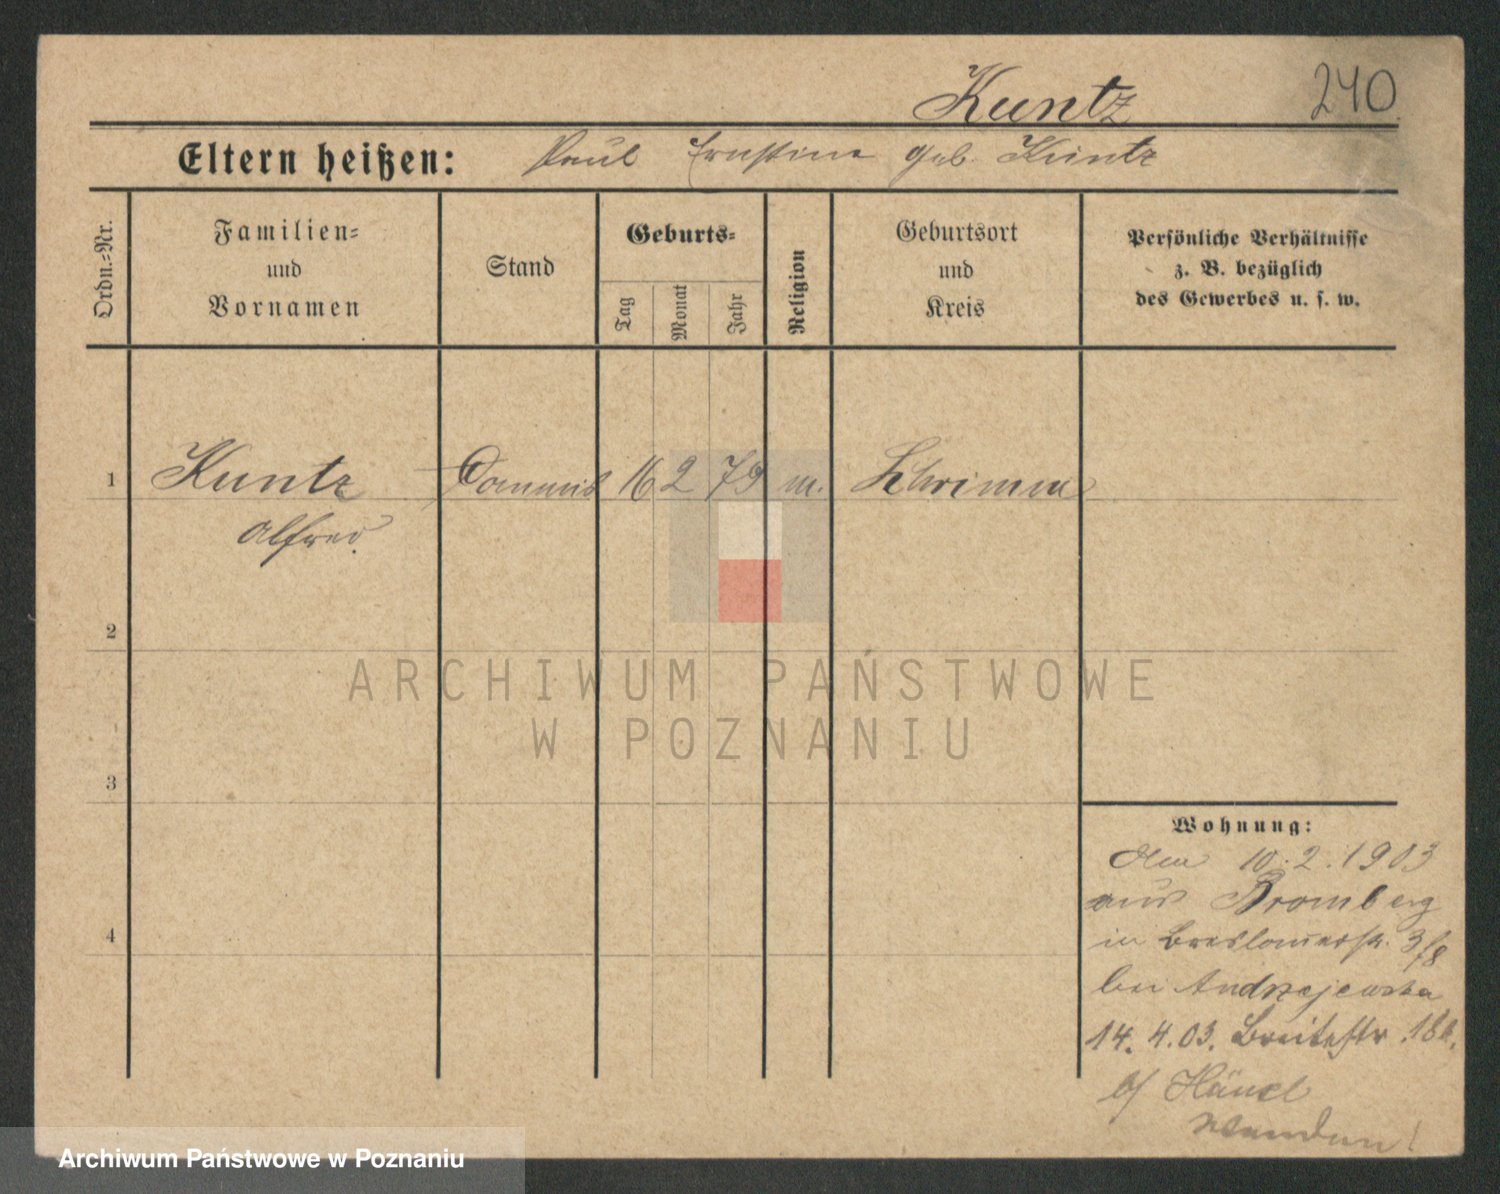 Kuntz
240
Eltern heißen: Paul Ernstine geb. Kuntz
Ordn.-Nr.
Familien-
und
Vornamen
Stand
Geburts-
Tag
Monat
Jahr
Religion
Geburtsort
und
Kreis
Persönliche Verhältnisse
z. B. bezüglich
des Gewerbes u. s. w.
1 Kuntz 16 2 79 m. Schrimm
Alfred
2
ARCHIWUM PAŃSTWOWE
W POZNANIU
3
Wohnung:
Den 10.2.1903
aus Bromberg
4
in Breslauerstr. 3/8
bei Andrzejewska
14. 4. 03. Breitestr. 18b.
b/ Hänel
Archiwum Państwowe w Poznaniu